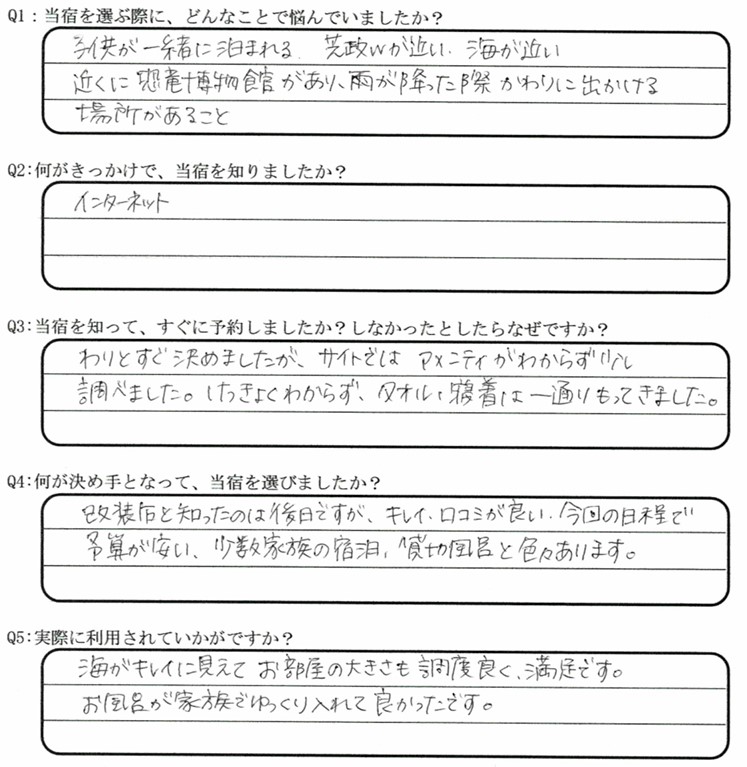 Q1:当宿を選ぶ際に、どんなことで悩んでいましたか？
子供が一緒に泊まれる、芝政Wが近い、海が近い
近くに恐竜博物館があり、雨が降った際かわりに出かける
場所があること
Q2:何がきっかけで、当宿を知りましたか？
インターネット
Q3:当宿を知って、すぐに予約しましたか？しなかったとしたらなぜですか？
わりとすぐ決めましたが、サイトでは アメニティがわからず少し
調べました。けっきょくわからず、タオル、寝着は一通りもってきました。
Q4:何が決め手となって、当宿を選びましたか？
改装后と知ったのは後日ですが、キレイ、口コミが良い、今回の日程で
予算が安い、少数家族の宿泊、貸切風呂と色々あります。
Q5:実際に利用されていかがですか？
海がキレイに見えて お部屋の大きさも調度良く、満足です。
お風呂が家族でゆっくり入れて良かったです。